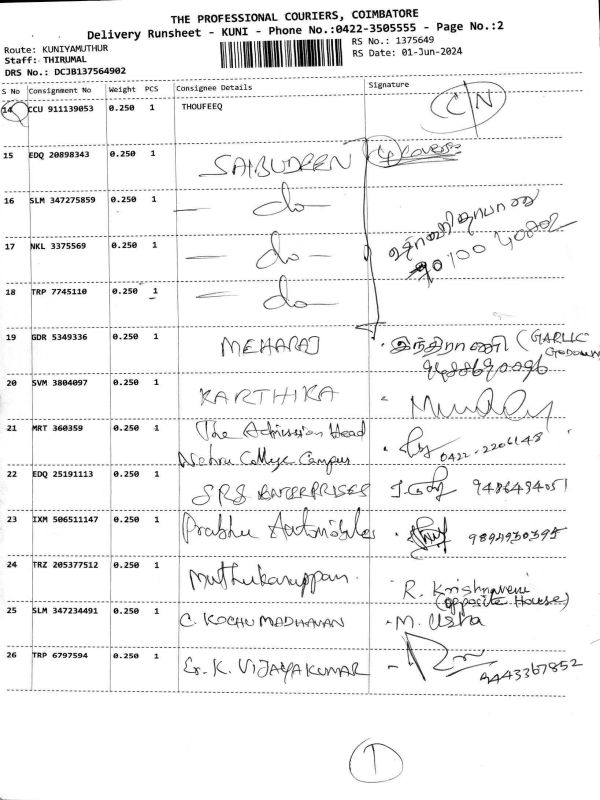 THE PROFESSIONAL COURIERS, COIMBATORE
Delivery Runsheet - KUNI - Phone No.:0422-3505555 - Page No.:2
Route: KUNIYAMUTHUR
RS No.: 1375649
Staff: THIRUMAL
RS Date: 01-Jun-2024
DRS No.: DCJB137564902
S No Consignment No Weight PCS Consignee Details Signature
14 CCU 911139053 0.250 1 THOUFEEQ CN
15 EDQ 20898343 0.250 1 SAIBUDEEN
16 SLM 347275859 0.250 1 — do —
17 NKL 3375569 0.250 1 — do —
18 TRP 7745110 0.250 1 — do —
19 GDR 5349336 0.250 1 MEHARAJ இந்திராணி (GARLIC
GODOWN
20 SVM 3804097 0.250 1 KARTHIKA
21 MRT 360359 0.250 1 The Admission Head
Nehru College Campus 0422-2206148
22 EDQ 25191113 0.250 1 SRS ENTERPRISES 9486494051
23 IXM 506511147 0.250 1 Prabhu Automobiles 9894930395
24 TRZ 205377512 0.250 1 Muthukaruppan R. Krishnaveni
(opposite House)
25 SLM 347234491 0.250 1 C. KOCHU MADHAVAN - M. Usha
26 TRP 6797594 0.250 1 Er. K. VIJAYAKUMAR 9443367852